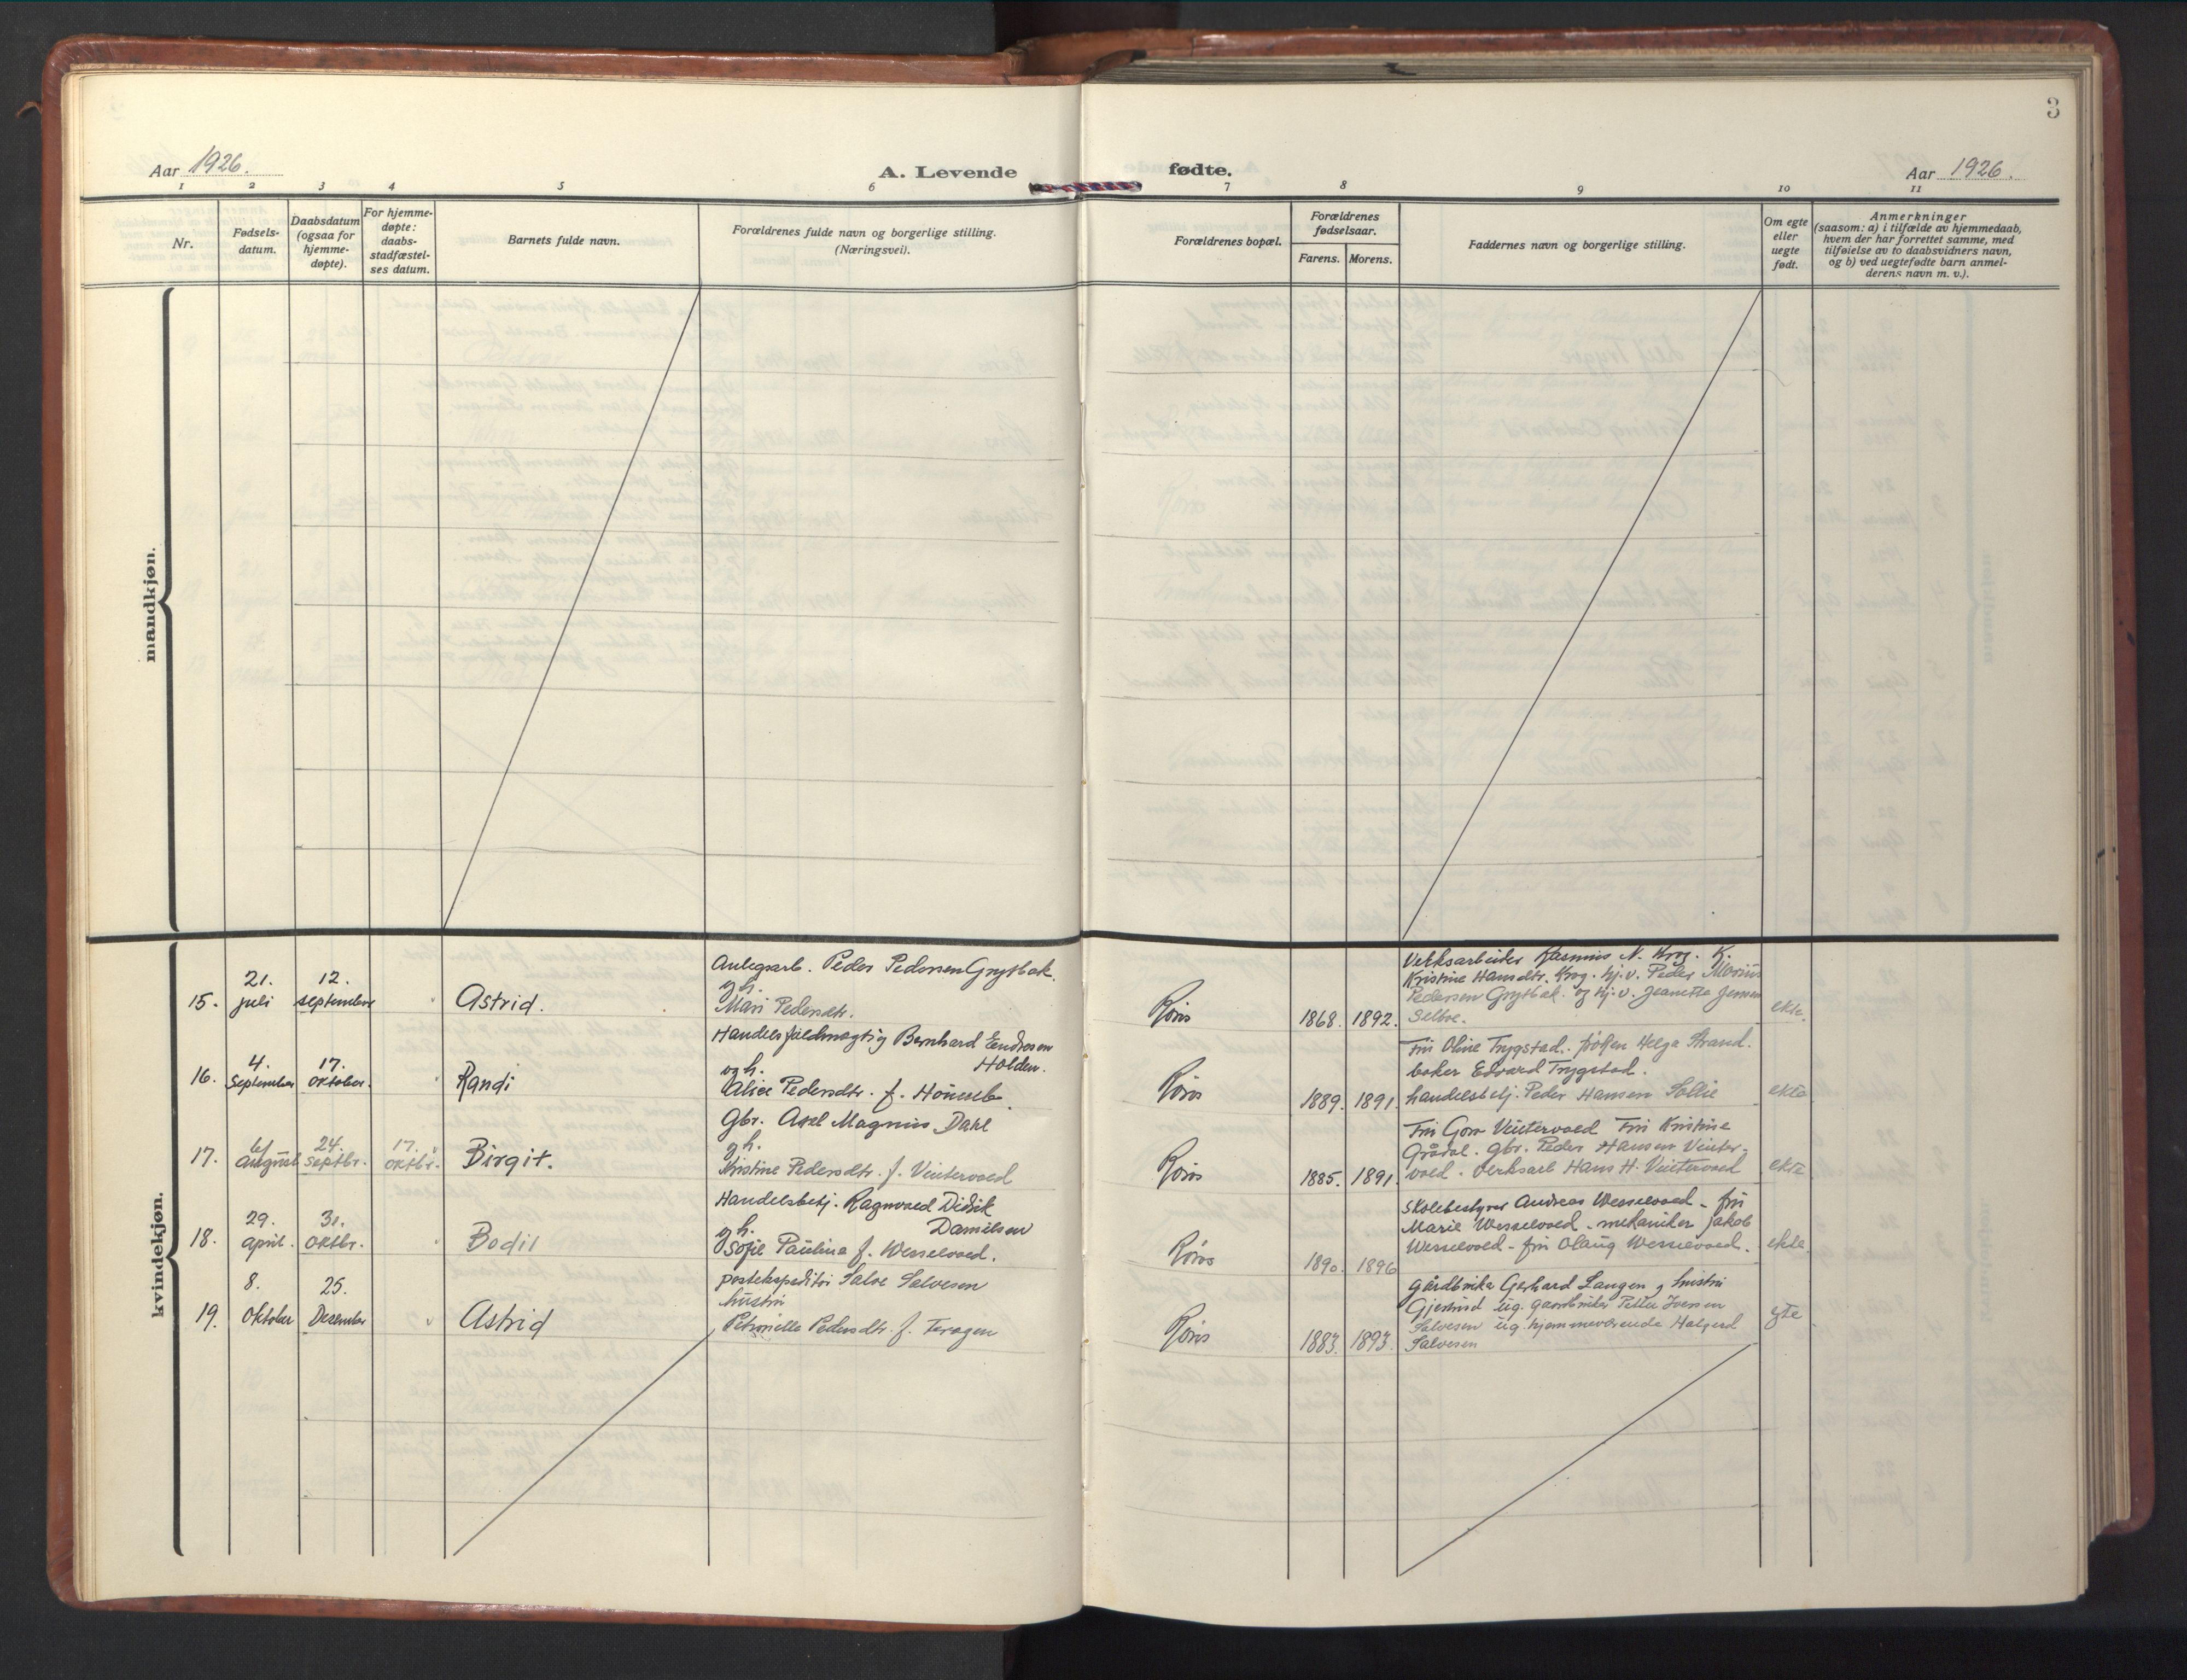 3
Aar 1926.
A. Levende
fødte.
Aar 1926.
1 2 3 4 5 6 7 8 9 10 11
Nr.
Fødsels-
datum.
Daabsdatum
(ogsaa for
hjemme-
døpte).
For hjemme-
døpte:
daabs-
stadfæstel-
ses datum.
Barnets fulde navn.
Forældrenes fulde navn og borgerlige stilling.
(Næringsvei).
Forældrenes bopæl.
Forældrenes
fødselsaar.
Farens. Morens.
Faddernes navn og borgerlige stilling.
Om egte
eller
uegte
født.
Anmerkninger
(saasom: a) i tilfælde av hjemmedaab,
hvem der har forrettet samme, med
tilføielse av to daabsvidners navn,
og b) ved uegtefødte barn anmel-
derens navn m. v.).
mandkjøn.
kvindekjøn.
15.
21.
juli
12.
september
Astrid.
Anlegsarb. Peder Pedersen Grytbak.
og h.
Mari Pedersdtr.
Røros
1868. 1892.
Verksarbeider Rasmus N. Krog. K.
Kristine Hansdtr. Krog. hj.v. Peder Marius
Pedersen Grytbak. og hj.v. Jeanetta Jensen
Selboe.
ekte.
16.
4.
September
17.
Oktober.
Randi
Handelsfuldmægtig Bernhard Endresen
Holden.
og h.
Alice Pedersdtr. f.
Røros
1889. 1891.
Fru Oline Trygstad. frøken Helga Strand.
baker Edvard Trygstad.
handelsbetj. Peder Hansen Sollie
ekte
17.
august
24.
Septbr.
17.
oktbr.
Birgit.
Gbr. Axel Magnus Dahl
og h.
Kristine Pedersdtr. f. Vintervold
Røros
1885. 1891.
Fru Gora Vintervold Fru Kristine
Grådal. gbr. Peder Hansen Vinter-
vold. Verksarb Hans H. Vintervold
ekte
18.
29.
april.
31.
oktbr.
Bodil
Handelsbetj. Ragnvald Didrik
Danielsen
og h.
Sofie Paulina f. Wesselvold.
Røros
1890. 1896
Skolebestyrer Andreas Wesselvold - fru
Marie Wesselvold - mekaniker Jakob
Wesselvold - fru Olaug Wesselvold.
ekte.
19.
8.
Oktober
25.
Desember
Astrid
postekspeditør Salve Salvesen
hustru
Petronelle Pedersdtr. f. Torogen
Røros
1883. 1893.
gårdbruker Gerhard Langen og hustru
Gjertrud ug. gaardbruker Petter Iversen
Salvesen ug. hjemmeværende Halgerd
Salvesen
egte